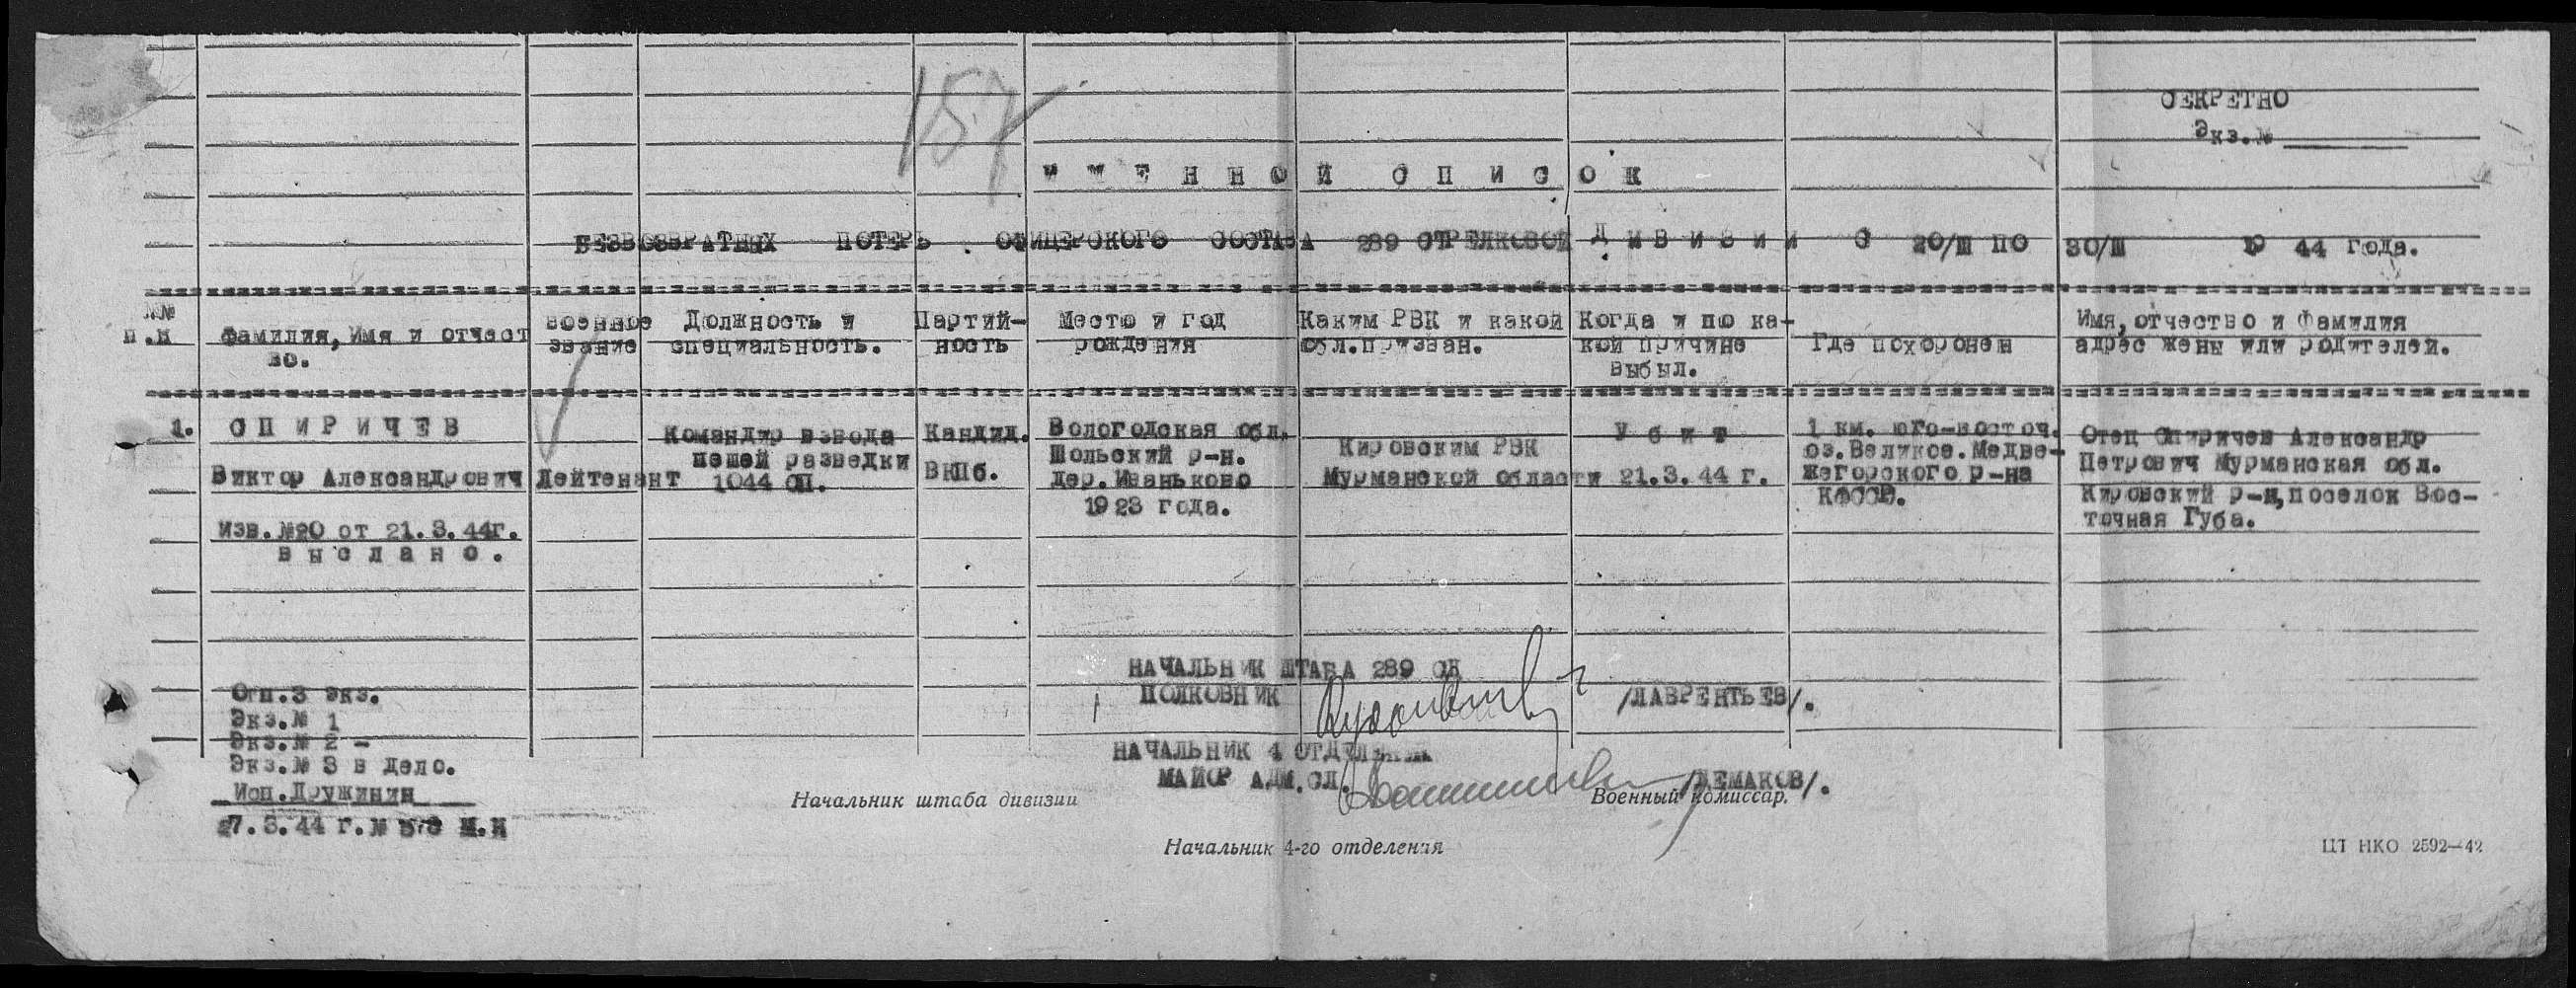 157
СЕКРЕТНО
Экз.№
ИМЕННОЙ СПИСОК
БЕЗВОЗВРАТНЫХ ПОТЕРЬ . ОФИЦЕРСКОГО СОСТАВА 289 СТРЕЛКОВОЙ ДИВИЗИИ С 20/III ПО 30/III 44 года.
№№ п.п
Фамилия, Имя и отчест
во.
Военное
звание
Должность и
специальность.
Партий-
ность
Место и год
рождения
Каким РВК и какой
обл.призван.
Когда и по ка-
кой причине
выбыл.
Где похоронен
Имя, отчество и Фамилия
адрес жены или родителей.
1.
СПИРИЧЕВ
Виктор Александрович
Изв.№20 от 21.3.44г.
выслано.
Лейтенант
Командир взвода
пешей разведки
1044 СП.
Кандид.
ВКПб.
Вологодская обл.
Шольский р-н.
Дер.Иваньково
1923 года.
Кировским РВК
Мурманской области
Убит
21.3.44 г.
1 км. юго-восточ.
оз.Великое.Медве-
жегорского р-на
КФССР.
Отец Спиричев Александр
Петрович Мурманская обл.
Кировский р-н, поселок Вос-
точная Губа.
НАЧАЛЬНИК ШТАБА 289 СД
ПОЛКОВНИК
/ЛАВРЕНТЬЕВ/.
НАЧАЛЬНИК 4 ОТДЕЛ
МАЙОР АДМ.СЛ.
/ДЕМАКОВ/.
Отп.3 экз.
Экз.№ 1
Экз.№ 2 -
Экз.№ 3 в дело.
Исп.Дружинин
27.3.44 г.№
Начальник штаба дивизии
Военный комиссар.
Начальник 4-го отделения
ЦТ НКО 2592—42